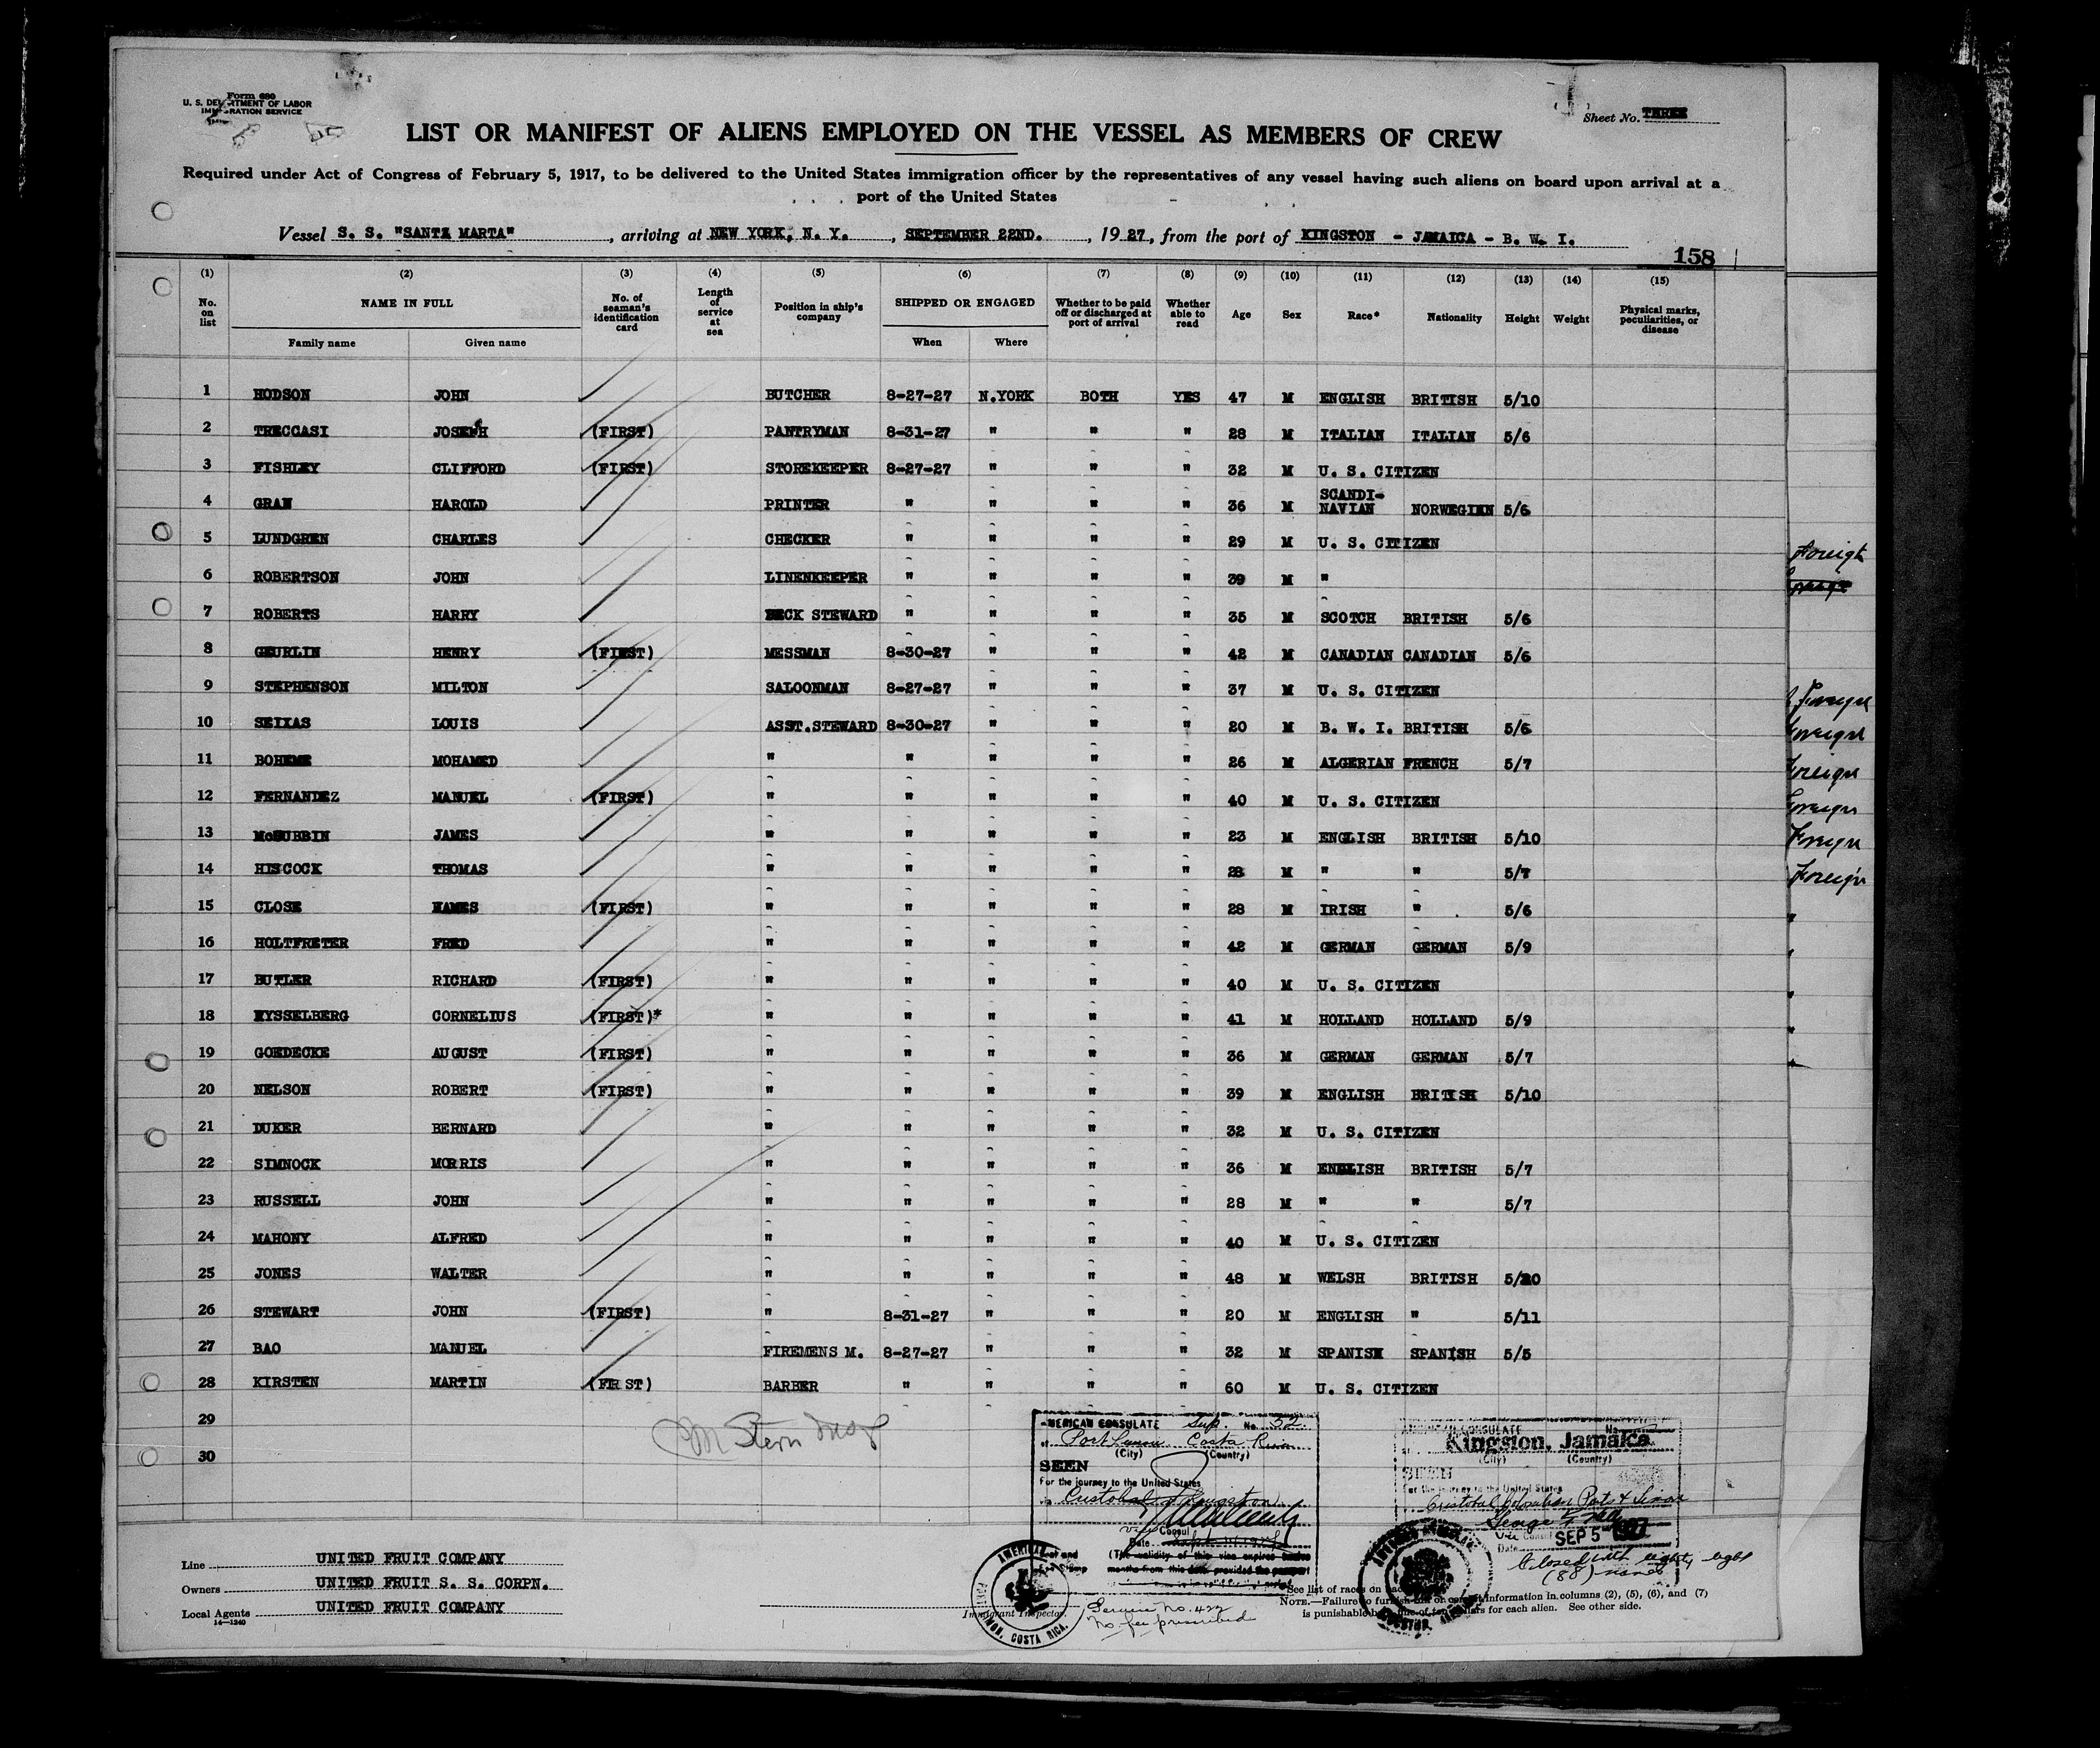 Form 680
U. S. DEPARTMENT OF LABOR
IMMIGRATION SERVICE
Sheet No. THREE
LIST OR MANIFEST OF ALIENS EMPLOYED ON THE VESSEL AS MEMBERS OF CREW
Required under Act of Congress of February 5, 1917, to be delivered to the United States immigration officer by the representatives of any vessel having such aliens on board upon arrival at a
port of the United States
Vessel S. S. "SANTA MARTA", arriving at NEW YORK, N. Y., SEPTEMBER 22ND., 1927, from the port of KINGSTON - JAMAICA - B. W. I.
158
(1) (2) (3) (4) (5) (6) (7) (8) (9) (10) (11) (12) (13) (14) (15)
No. on list NAME IN FULL No. of seaman's identification card Length of service at sea Position in ship's company SHIPPED OR ENGAGED Whether to be paid off or discharged at port of arrival Whether able to read Age Sex Race* Nationality Height Weight Physical marks, peculiarities, or disease
Family name Given name When Where
1 HODSON JOHN BUTCHER 8-27-27 N.YORK BOTH YES 47 M ENGLISH BRITISH 5/10
2 TRECCASI JOSEPH (FIRST) PANTRYMAN 8-31-27 " " " 28 M ITALIAN ITALIAN 5/6
3 FISHLEY CLIFFORD (FIRST) STOREKEEPER 8-27-27 " " " 32 M U. S. CITIZEN
4 GRAN HAROLD PRINTER " " " " 36 M SCANDI-NAVIAN NORWEGIEN 5/6
5 LUNDGREN CHARLES CHECKER " " " " 29 M U. S. CITIZEN
6 ROBERTSON JOHN LINENKEEPER " " " " 39 M "
7 ROBERTS HARRY DECK STEWARD " " " " 35 M SCOTCH BRITISH 5/6
8 GEURLIN HENRY (FIRST) MESSMAN 8-30-27 " " " 42 M CANADIAN CANADIAN 5/6
9 STEPHENSON MILTON SALOONMAN 8-27-27 " " " 37 M U. S. CITIZEN
10 SEIXAS LOUIS ASST.STEWARD 8-30-27 " " " 20 M B. W. I. BRITISH 5/6
11 BOHEME MOHAMED " " " " " 26 M ALGERIAN FRENCH 5/7
12 FERNANDEZ MANUEL (FIRST) " " " " " 40 M U. S. CITIZEN
13 McGUBBIN JAMES " " " " " 23 M ENGLISH BRITISH 5/10
14 HISCOCK THOMAS " " " " " 28 M " " 5/7
15 CLOSE JAMES (FIRST) " " " " " 28 M IRISH " 5/6
16 HOLTFRETER FRED " " " " " 42 M GERMAN GERMAN 5/9
17 BUTLER RICHARD (FIRST) " " " " " 40 M U. S. CITIZEN
18 RYSSELBERG CORNELIUS (FIRST)* " " " " " 41 M HOLLAND HOLLAND 5/9
19 GOEDECKE AUGUST (FIRST) " " " " " 36 M GERMAN GERMAN 5/7
20 NELSON ROBERT (FIRST) " " " " " 39 M ENGLISH BRITISH 5/10
21 DUKER BERNARD " " " " " 32 M U. S. CITIZEN
22 SIMNOCK MORRIS " " " " " 36 M ENGLISH BRITISH 5/7
23 RUSSELL JOHN " " " " " 28 M " " 5/7
24 MAHONY ALFRED " " " " " 40 M U. S. CITIZEN
25 JONES WALTER " " " " " 48 M WELSH BRITISH 5/10
26 STEWART JOHN (FIRST) " 8-31-27 " " " 20 M ENGLISH " 5/11
27 BAO MANUEL FIREMENS M. 8-27-27 " " " 32 M SPANISH SPANISH 5/5
28 KIRSTEN MARTIN (FIRST) BARBER " " " " 60 M U. S. CITIZEN
29
30
Foreign
Foreign
Foreign
Foreign
Foreign
Foreign
Foreign
AMERICAN CONSULATE Sup. No. 52
at Port Limon Costa Rica
(City) (Country)
SEEN
For the journey to the United States
Cristobal & Kingston
Vice Consul
Date
(The validity of this visa expires twelve
months from this date, provided the passport
Service No. 422
No fee prescribed
AMERICAN CONSULATE No.
Kingston, Jamaica
(City) (Country)
SEEN
For the journey to the United States
Cristobal Colombian Ports & Limon
Vice Consul
Date SEP 5 1927
Closed with eighty eight
(88) names
PORT LIMON, COSTA RICA.
Line UNITED FRUIT COMPANY
Owners UNITED FRUIT S. S. CORPN.
Local Agents UNITED FRUIT COMPANY
14—1240
Immigrant Inspector.
See list of races on
NOTE.—Failure to furnish this or correct information in columns (2), (5), (6), and (7)
is punishable by fine of ten dollars for each alien. See other side.